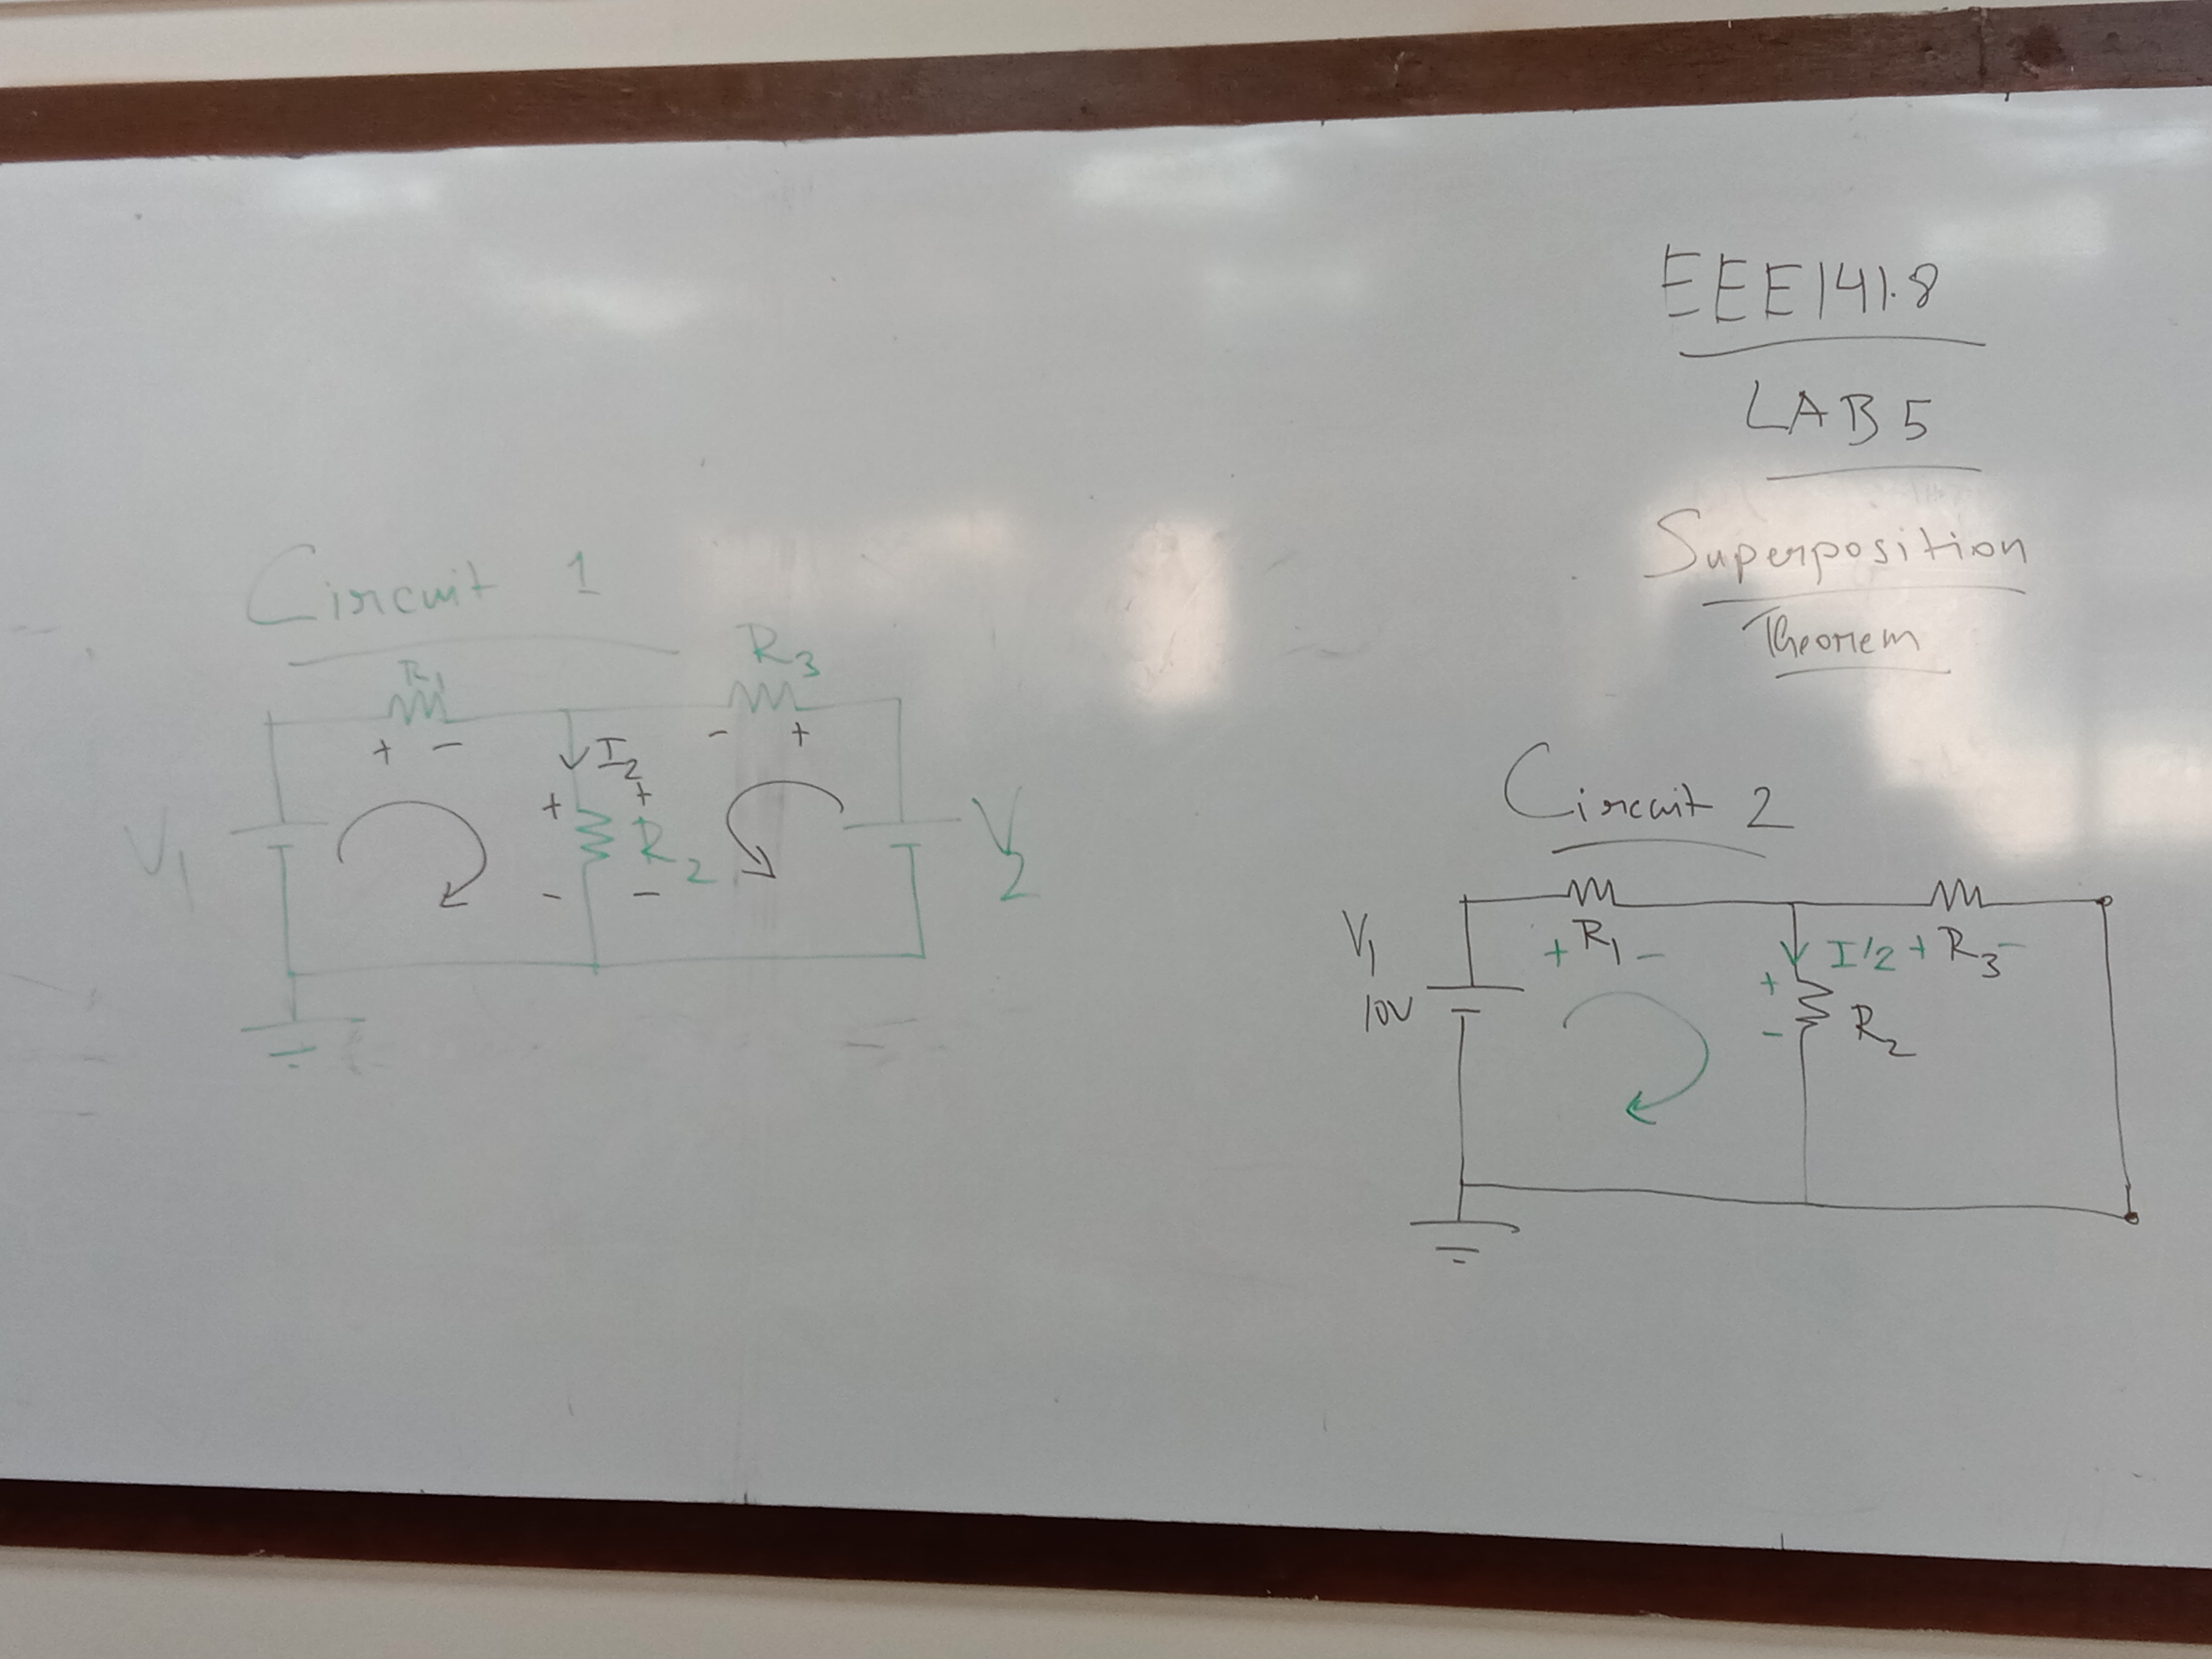 EEE141.8
LAB 5
Superposition
Theorem
Circuit 1
R1
R3
+ -
- +
I2
+ +
V1
R2
V2
- -
Circuit 2
V1
10V
+ R1 -
I'2
+ R3 -
+
-
R2